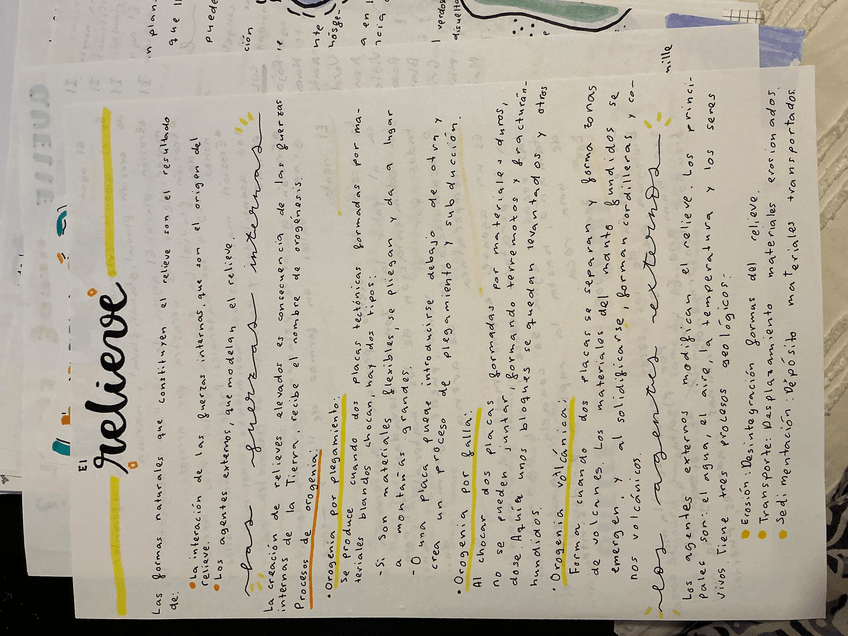 El
relieve
Las formas naturales que constituyen el relieve son el resultado
de:
• La interación de las fuerzas internas, que son el origen del
relieve.
• Los agentes externos, que modelan el relieve.
las fuerzas internas
La creación de relieves elevados es consecuencia de las fuerzas
internas de la Tierra recibe el nombre de orogénesis.
Procesos de orogenia:
• Orogenia por plegamiento:
Se produce cuando dos placas tectónicas formadas por ma-
teriales blandos chocan, hay dos tipos:
- Si son materiales flexibles, se pliegan y da a lugar
a montañas grandes.
- O una placa puege introducirse debajo de otra y
crea un proceso de plegamiento y subducción.
• Orogenia por falla:
Al chocar dos placas formadas por materiales duros,
no se pueden juntar, formando terremotos y fracturan-
dose. Aquí unos bloques se quedan levantados y otros
hundidos.
• Orogenia volcánica:
Forma cuando dos placas se separan y forma zonas
de volcanes. Los materiales del manto fundidos se
emergen, y al solidificarse, forman cordilleras y co-
nos volcánicos.
los agentes externos
Los agentes externos modifican el relieve. Los princi-
pales son: el agua, el aire, la temperatura y los seres
vivos tiene tres procesos geológicos:
• Erosión: Desintegración formas del relieve.
• Transporte: Desplazamiento materiales erosionados.
• Sedimentación: Depósito materiales transportados.